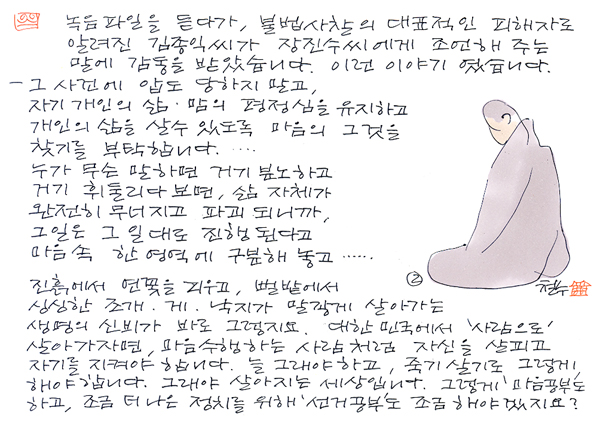 녹음파일을 듣다가, 불법사찰의 대표적인 피해자로
알려진 김종익씨가 장진수씨에게 조언해 주는
말에 감동을 받았습니다. 이런 이야기 였습니다.
- 그 사건에 압도 당하지 말고,
자기 개인의 삶·맘의 평정심을 유지하고
개인의 삶을 살수 있도록 마음의 그것을
찾기를 부탁합니다. ‥‥
누가 무슨 말하면 거기 분노하고
거기 휘둘리다 보면, 삶 자체가
완전히 무너지고 파괴 되니까,
그일은 그 일대로 진행 된다고
마음 속 한 영역에 구분해 놓고 ‥‥‥
②
철수
진흙에서 연꽃을 피우고, 뻘밭에서
싱싱한 조개·게·낙지가 말짱게 살아가는
생명의 신비가 바로 그렇지요. 대한민국에서 '사람으로'
살아가자면, 마음수행하는 사람처럼 자신을 살피고
자기를 지켜야 합니다. 늘 그래야하고, 죽기 살기로 그렇게
해야 합니다. 그래야 살아지는 세상입니다. 그렇게 '마음공부'도
하고, 조금 더 나은 정치를 위해 '선거공부'도 조금 해야 겠지요?